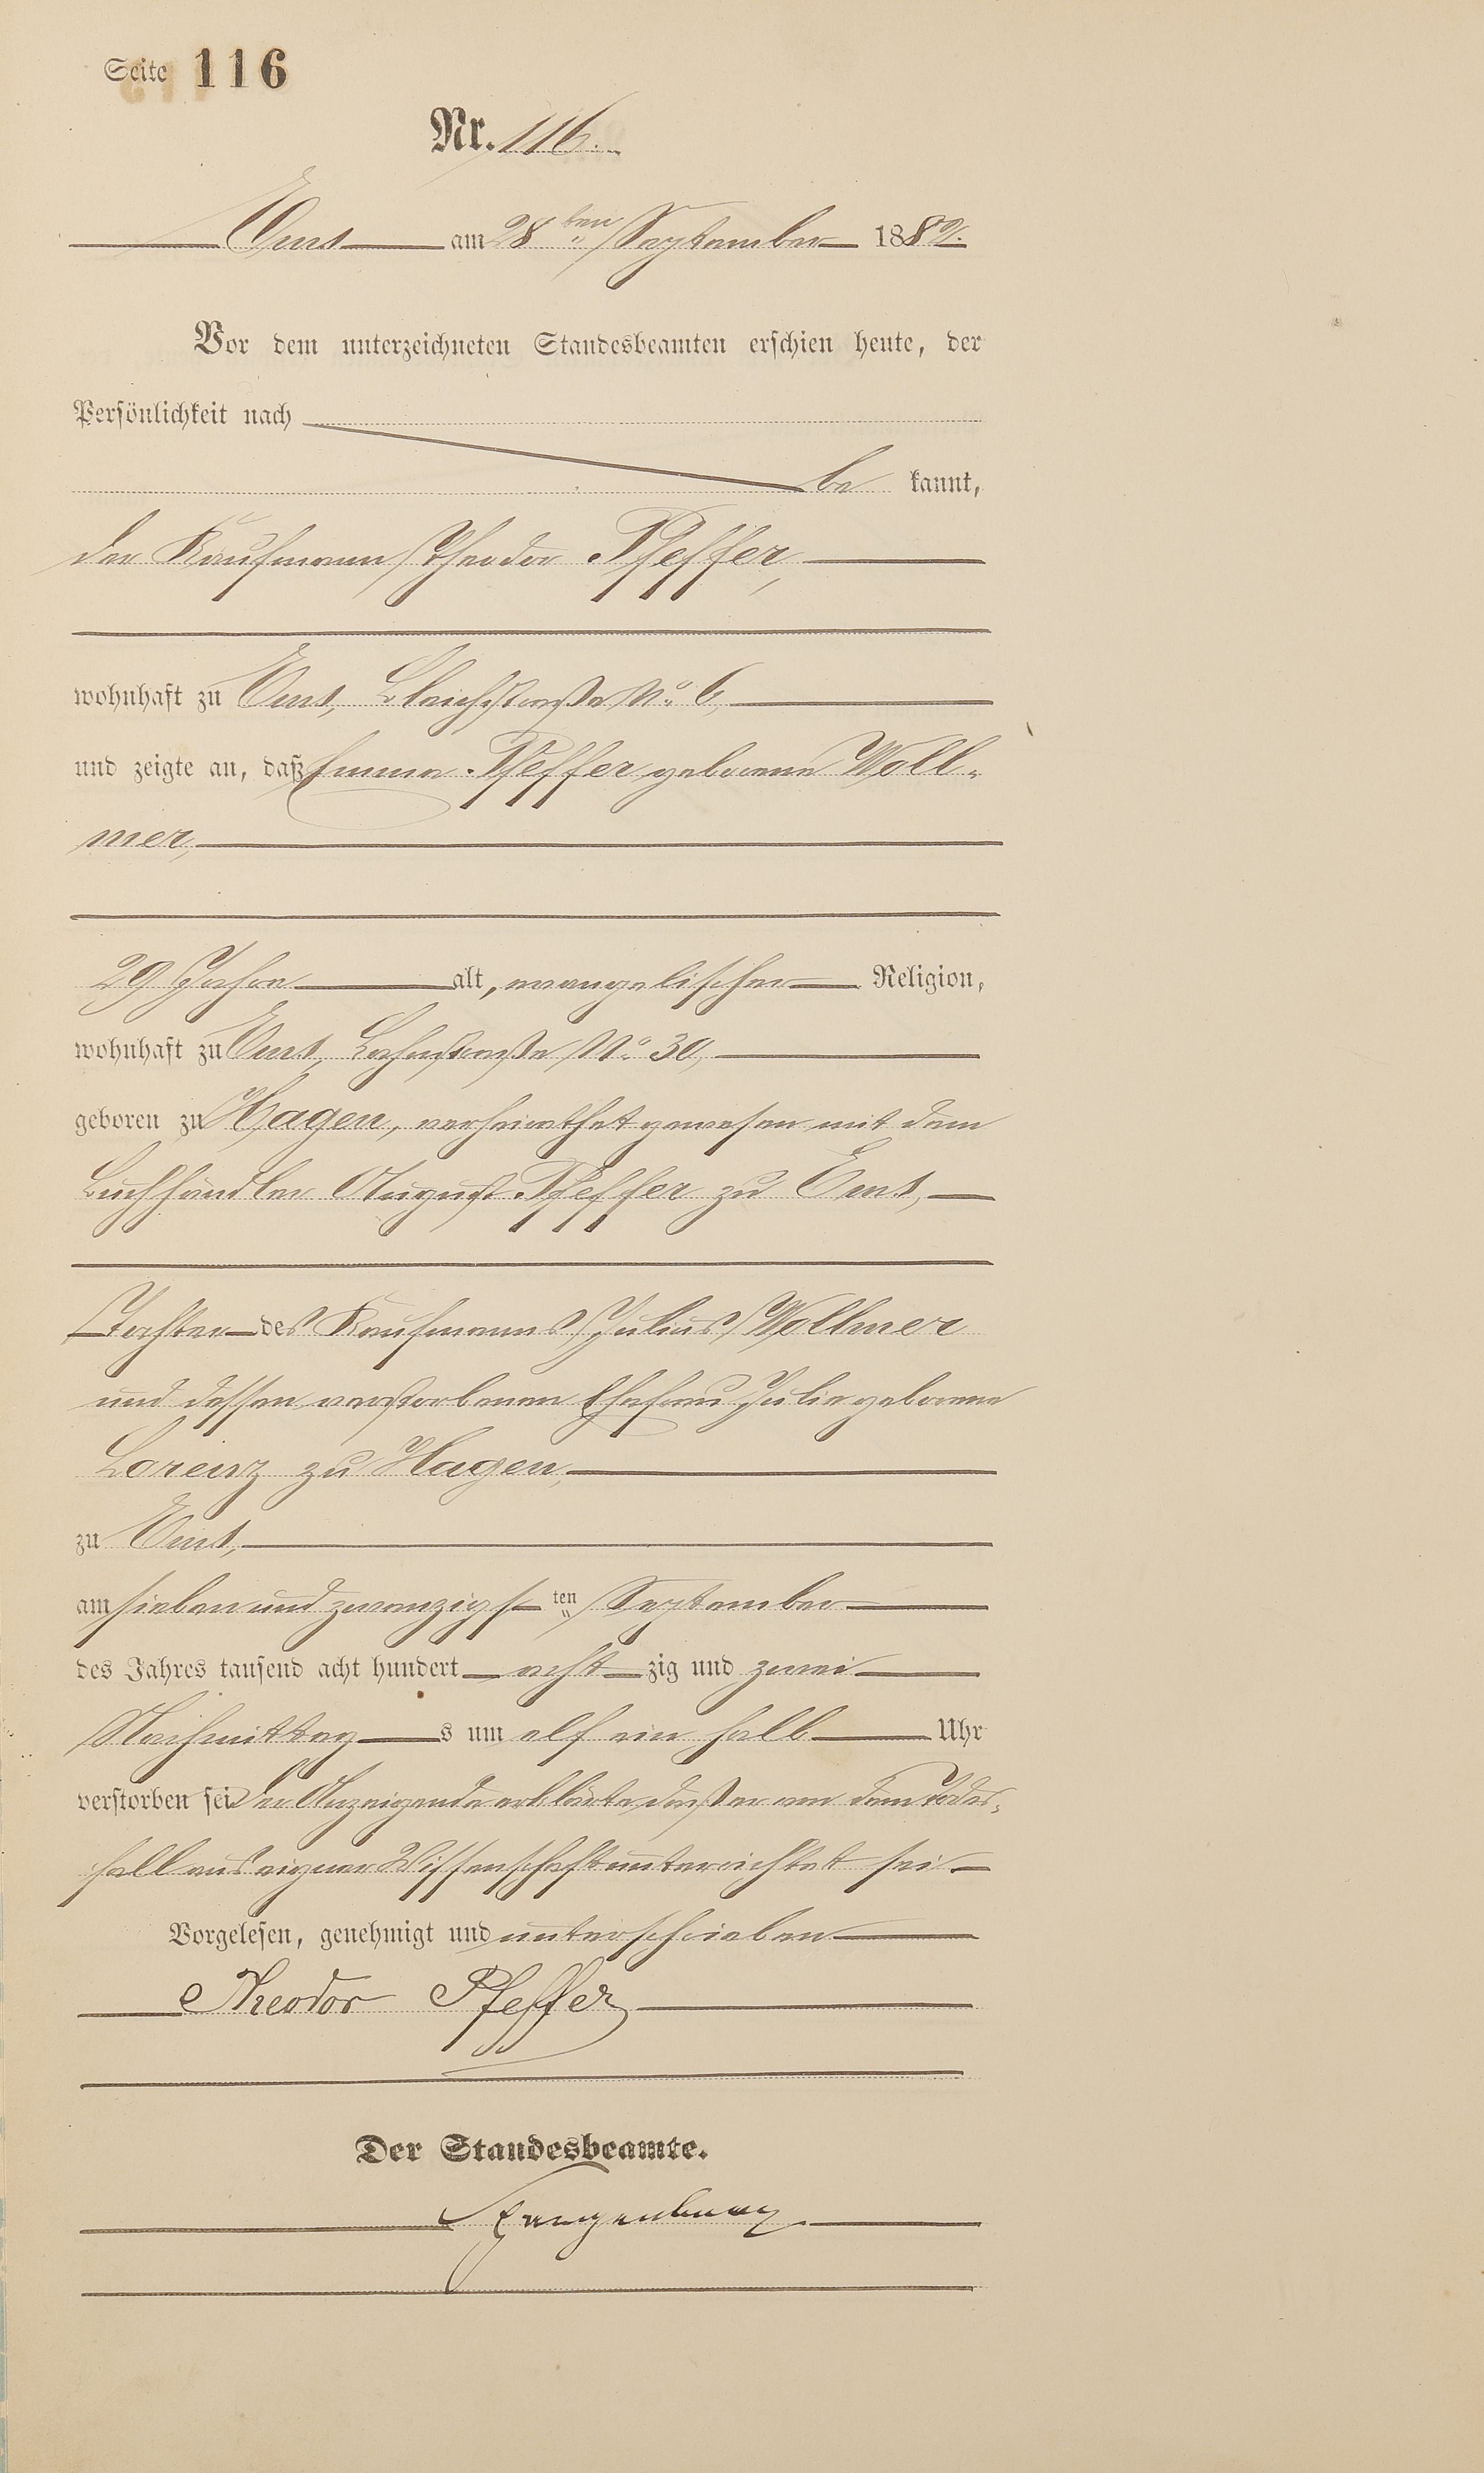 Seite 116
Nr. 116.
Ems am 28ten September 1882.
Vor dem unterzeichneten Standesbeamten erschien heute, der
Persönlichkeit nach
be kannt,
der Kaufmann Theodor Pfeffer,
wohnhaft zu Ems, Bleichstraße No. 6,
und zeigte an, daß Emma Pfeffer geborene Woll-
mer,
29 Jahre alt, evangelischer Religion,
wohnhaft zu Ems, Lahnstraße No. 30,
geboren zu Hagen, verheirathet gewesen mit dem
Buchhändler August Pfeffer zu Ems,
Tochter des Kaufmanns Julius Wollmer
und dessen verstorbenen Ehefrau Julie geborene
Lorenz zu Hagen,
zu Ems,
am sieben und zwanzigsten September
des Jahres tausend acht hundert acht zig und zwei
Nachmittag s um elf ein halb Uhr
verstorben sei Der Anzeigende erklärte daß er von dem Todes-
fall aus eigner Wissenschaft unterrichtet sei
Vorgelesen, genehmigt und unterschrieben
Theodor Pfeffer
Der Standesbeamte.